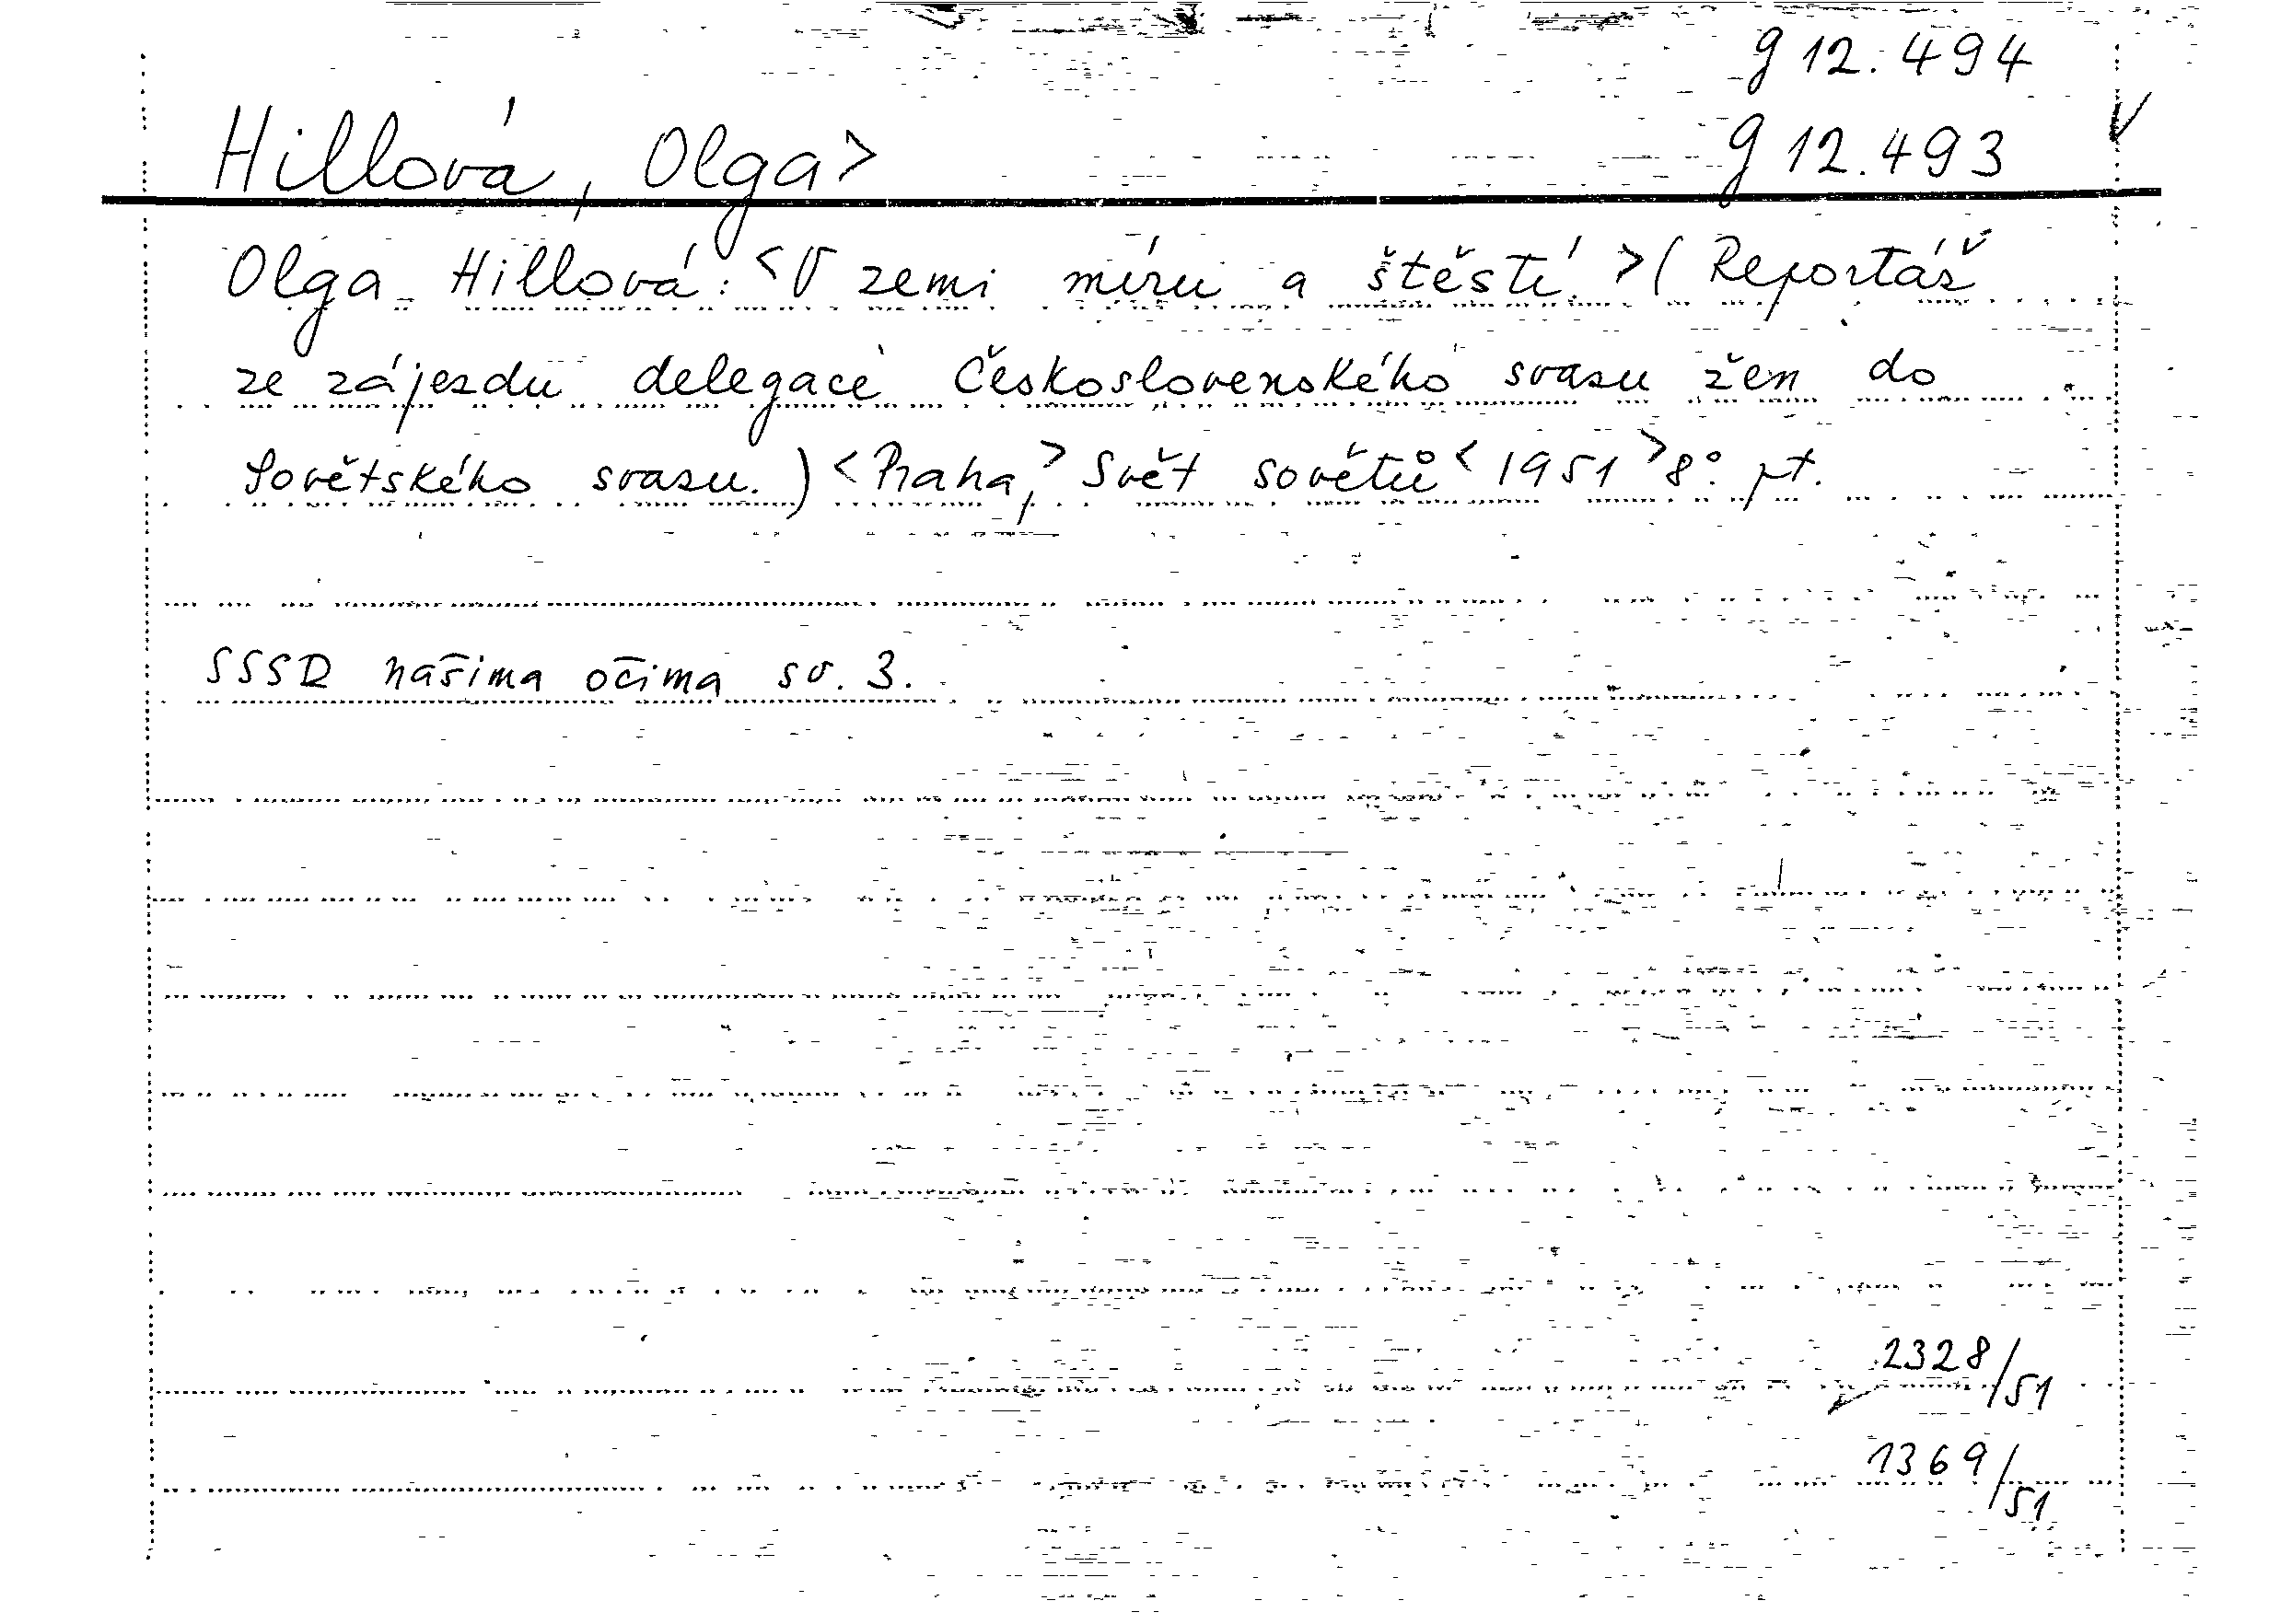 g 12.494
Hillová, Olga> g 12.493
Olga Hillová: <V zemi míru a štěstí.>(Reportáž
ze zájezdu delegace Československého svazu žen do
Sovětského svazu.)<Praha,> Svět sovětů <1951> 8°. pt.
SSSR našima očima sv. 3.
2328/51
1369/51